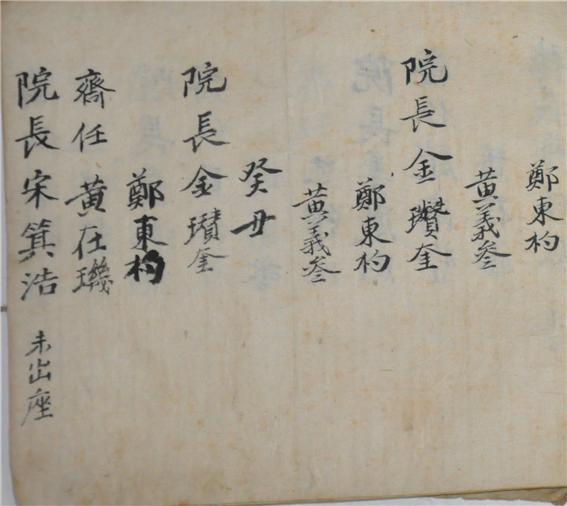 鄭東杓
黄義叄
院長金瓚奎
鄭東杓
黄義叄
癸丑
院長金瓚奎
鄭東杓
齋任黄在璣
院長宋箕浩 未出座